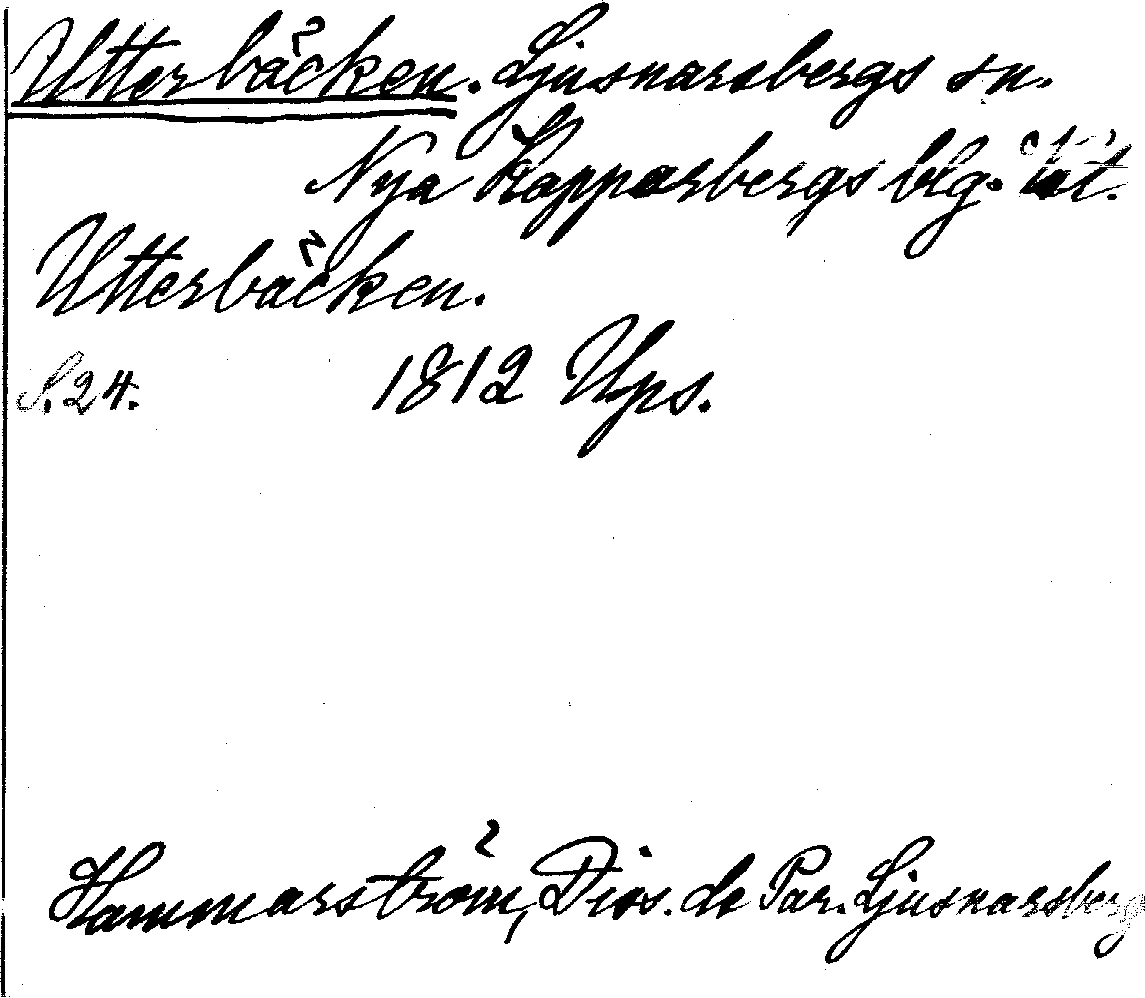 Utterbäcken. Ljusnarsbergs sn.
Nya Kopparbergs blg.
Utterbäcken.
S. 24. 1812 Ups.
Hammarström, Diss. de Par. Ljusnarsberg